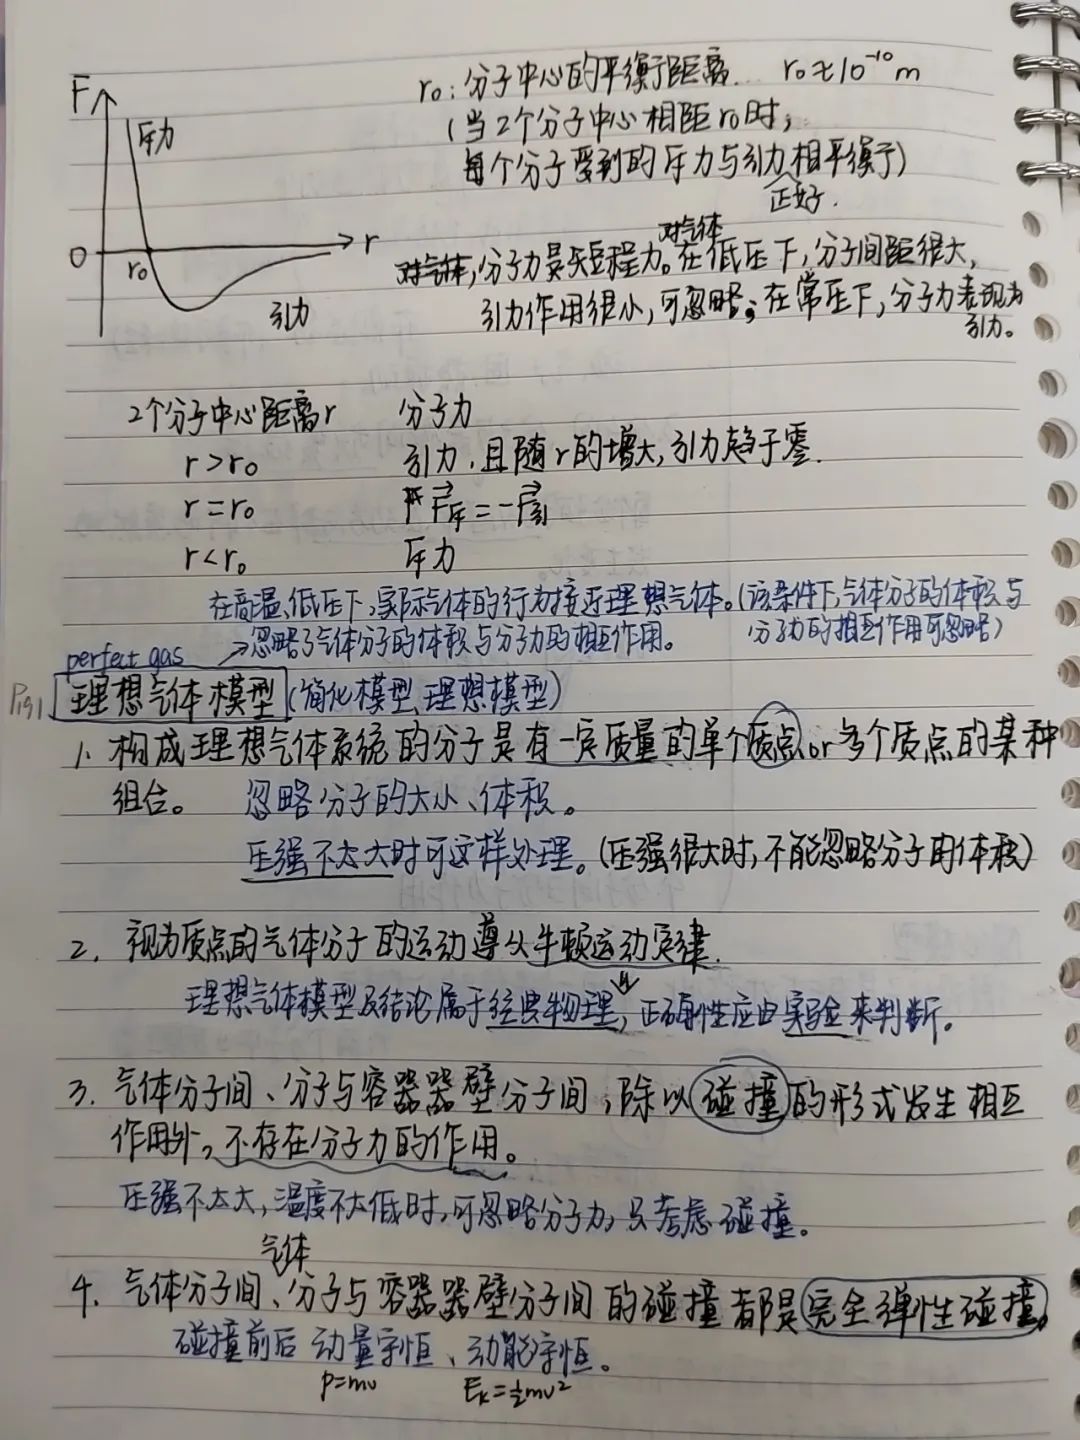 F
斥力
O
r₀
r
引力
r₀:分子中心的平衡距离. r₀≈10⁻¹⁰m
(当2个分子中心相距r₀时,
每个分子受到的斥力与引力正好相平衡)
分子力是短程力。对气体在低压下,分子间距很大,
引力作用很小,可忽略;在常压下,分子力表现为
引力。
2个分子中心距离r 分子力
r>r₀ 引力,且随r的增大,引力趋于零.
r=r₀ F⃗斥=-F⃗引
r<r₀ 斥力
在高温、低压下,实际气体的行为接近理想气体。(该条件下,气体分子的体积与
分子力的相互作用可忽略)
→忽略了气体分子的体积与分子力的相互作用。
perfect gas
P191 理想气体模型(简化模型、理想模型)
1. 构成理想气体系统的分子是有一定质量的单个质点or多个质点的某种
组合。 忽略分子的大小、体积。
压强不太大时可这样处理。(压强很大时,不能忽略分子的体积)
2. 视为质点的气体分子的运动遵从牛顿运动定律.
理想气体模型及结论属于经典物理,正确性应由实验来判断。
3. 气体分子间、分子与容器器壁分子间,除以碰撞的形式发生相互
作用外,不存在分子力的作用。
压强不太大,温度不太低时,可忽略分子力,只考虑碰撞。
4. 气体分子间、气体分子与容器器壁分子间的碰撞都是完全弹性碰撞。
碰撞前后 动量守恒、动能守恒。
p=mv Eₖ=½mv²